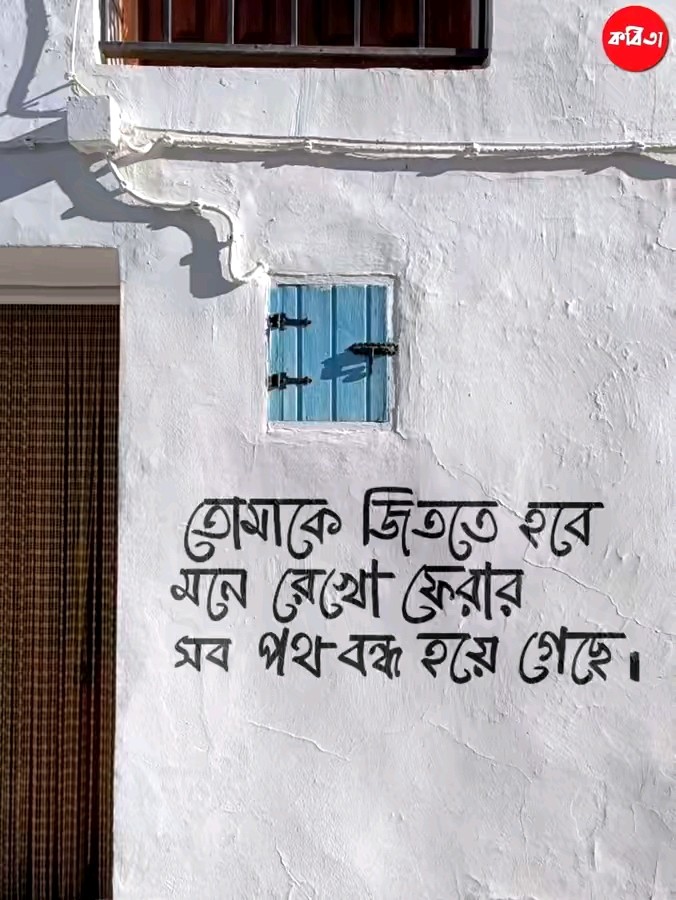 কবিতা
তোমাকে জিততে হবে
মনে রেখো ফেরার
সব পথ বন্ধ হয়ে গেছে।